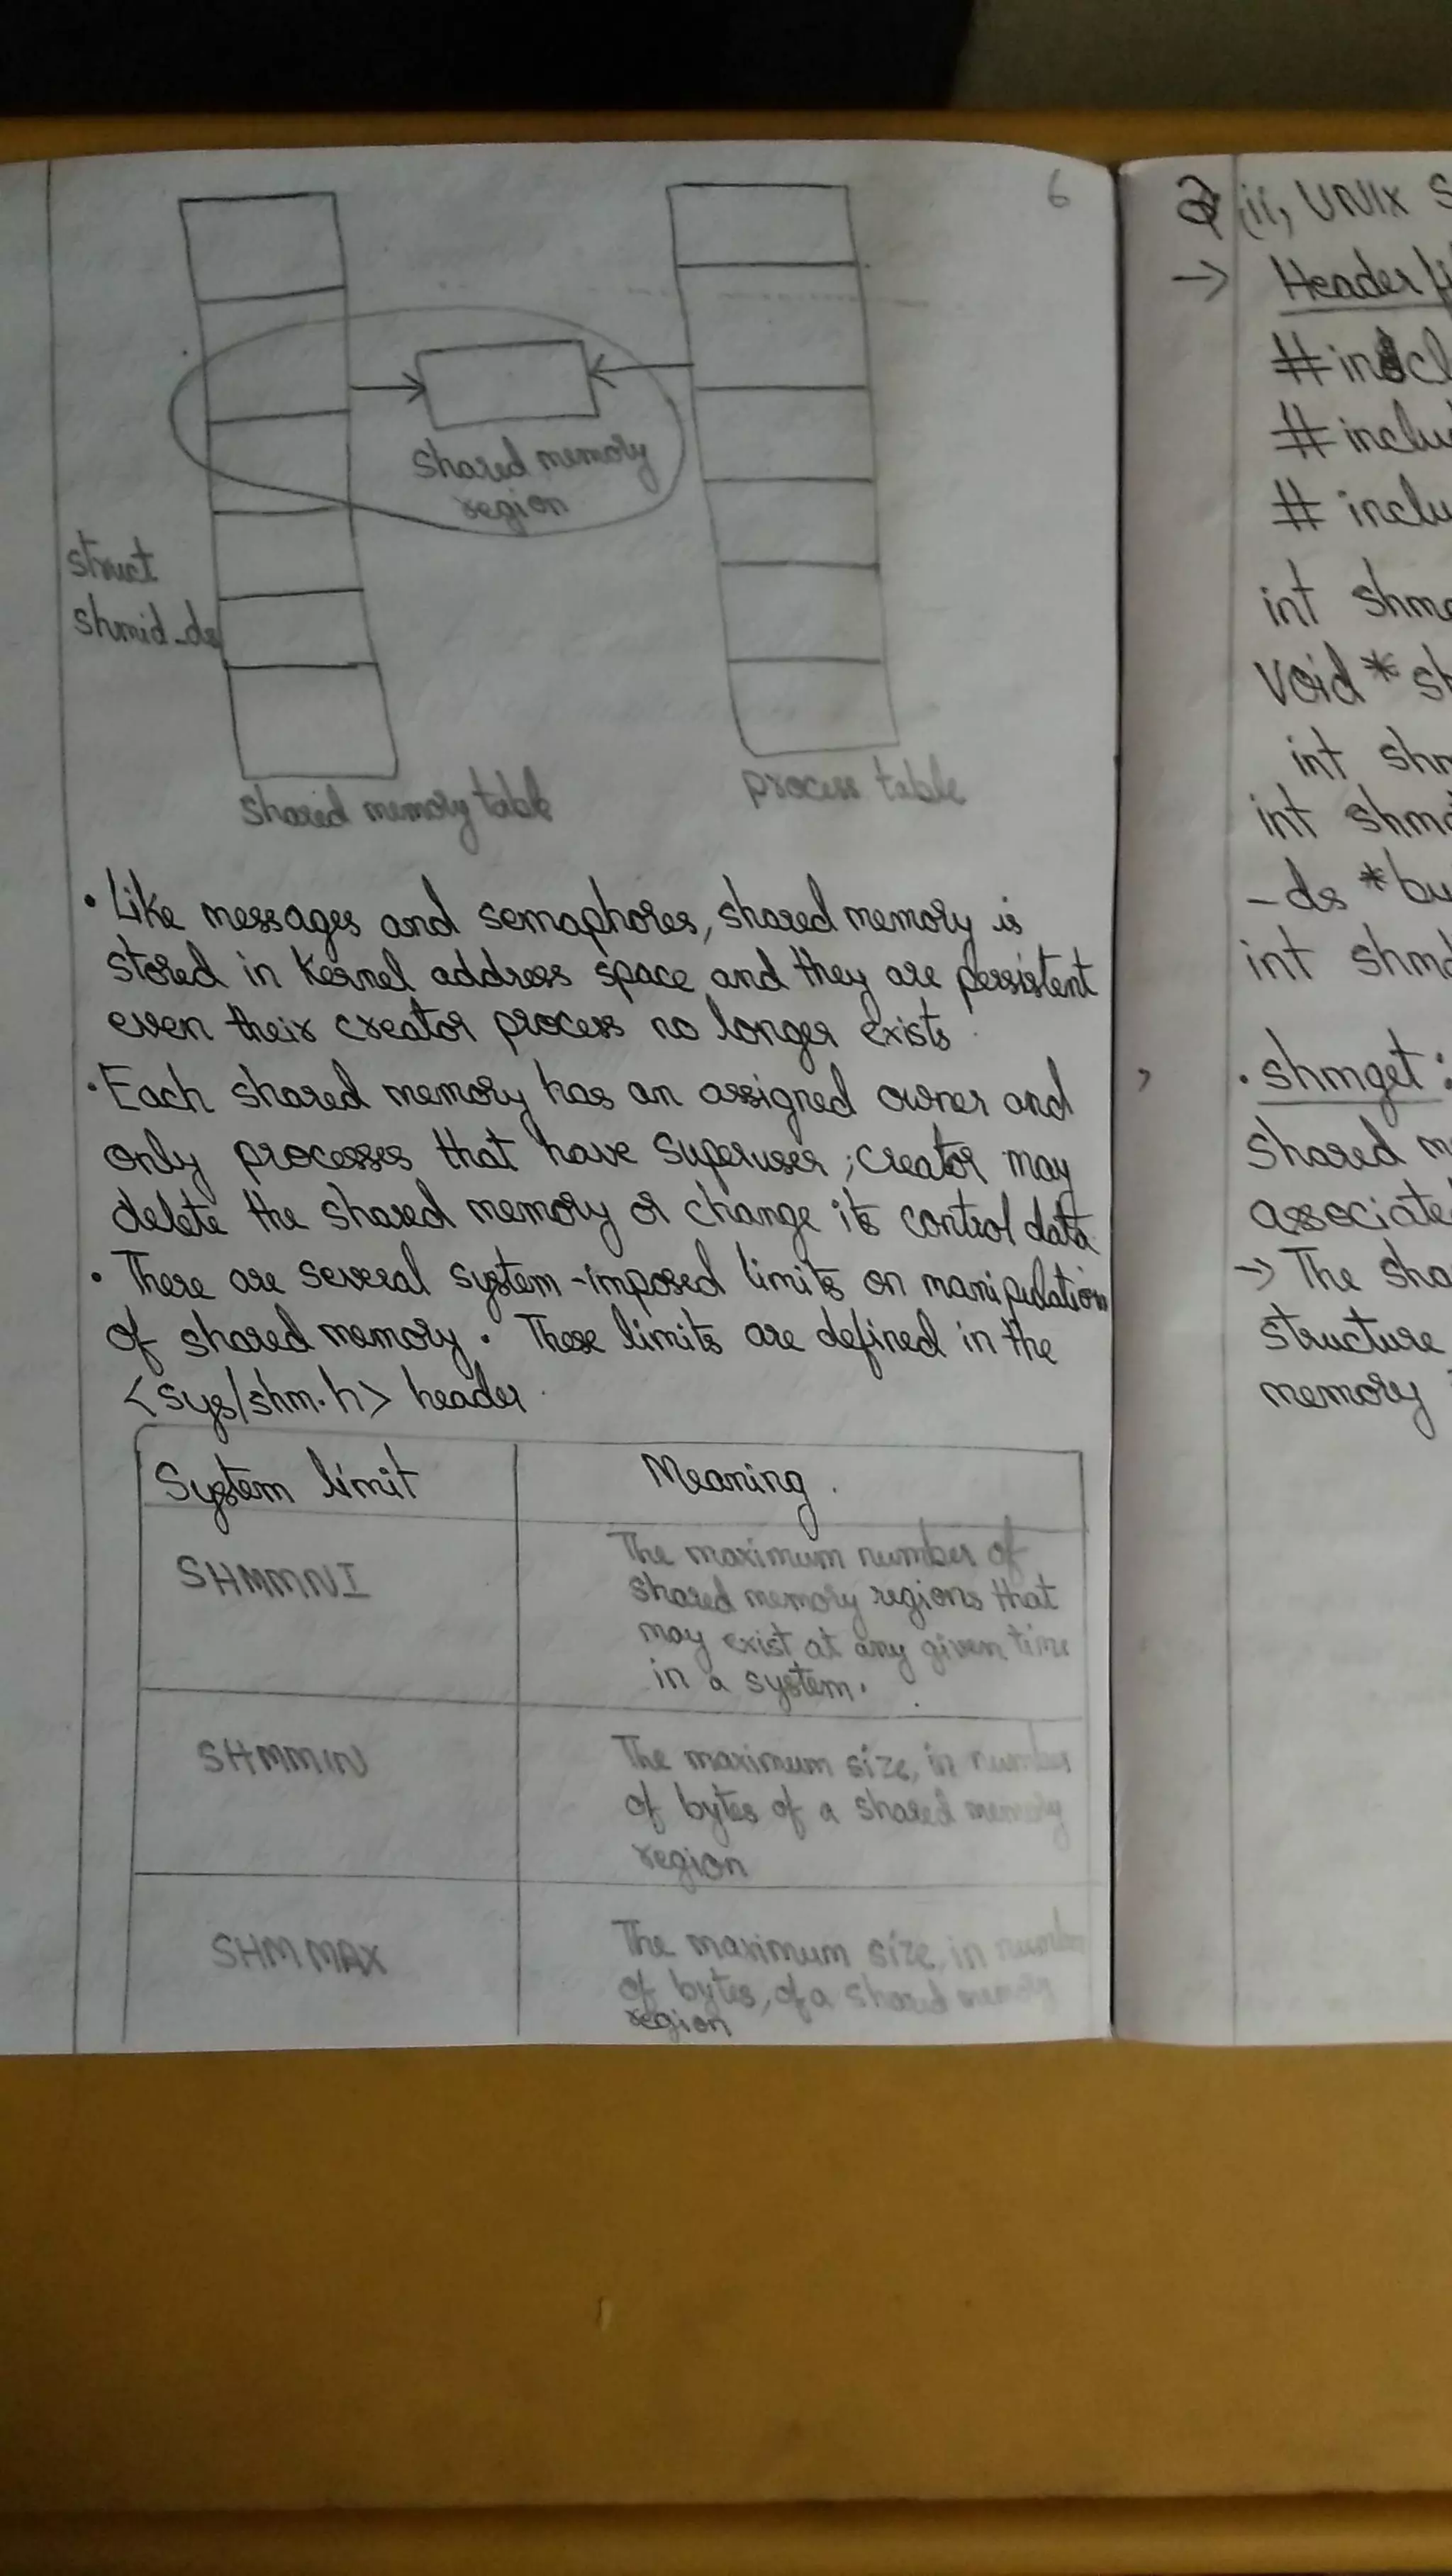 6
shared memory
region
struct
shmid_ds
shared memory table
process table
• Like messages and semaphores, shared memory is
stored in kernel address space and they are persistent
even their creator process no longer exists.
• Each shared memory has an assigned owner and
only processes that have superuser, creator may
delete the shared memory or change its control data
• There are several system-imposed limits on manipulation
of shared memory. These limits are defined in the
<sys/shm.h> header.
System limit
Meaning.
SHMMNI
The maximum number of
shared memory regions that
may exist at any given time
in a system.
SHMMIN
The maximum size, in number
of bytes of a shared memory
region
SHMMAX
The maximum size, in number
of bytes, of a shared memory
region
(ii, UNIX S
→ Header fi
#incl
#inclu
# inclu
int shmg
void * sh
int shm
int shm
_ds *bu
int shmd
• shmget :
shared m
associate
→ The sha
structure
memory